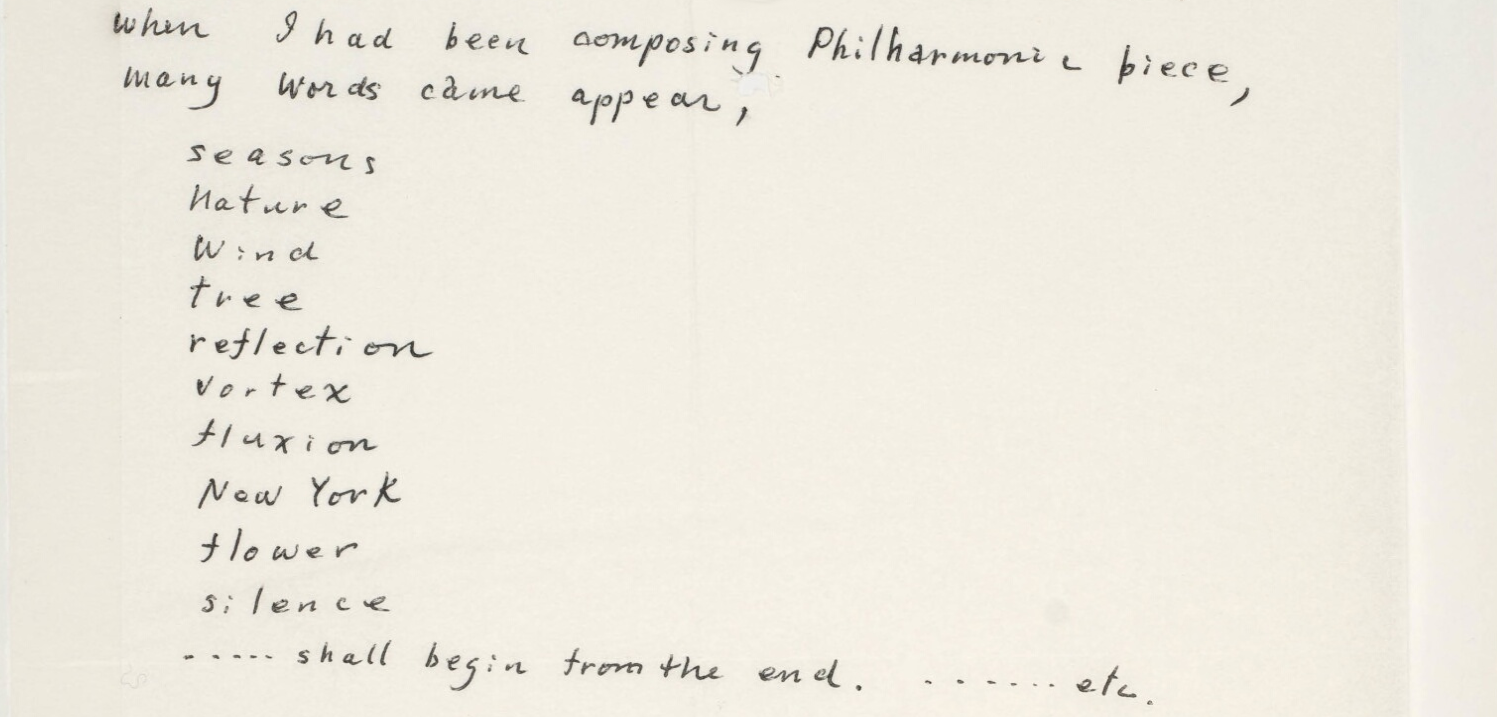 when I had been composing Philharmonic piece,
many words came appear,
seasons
nature
wind
tree
reflection
vortex
fluxion
New York
flower
silence
..... shall begin from the end. ....... etc.